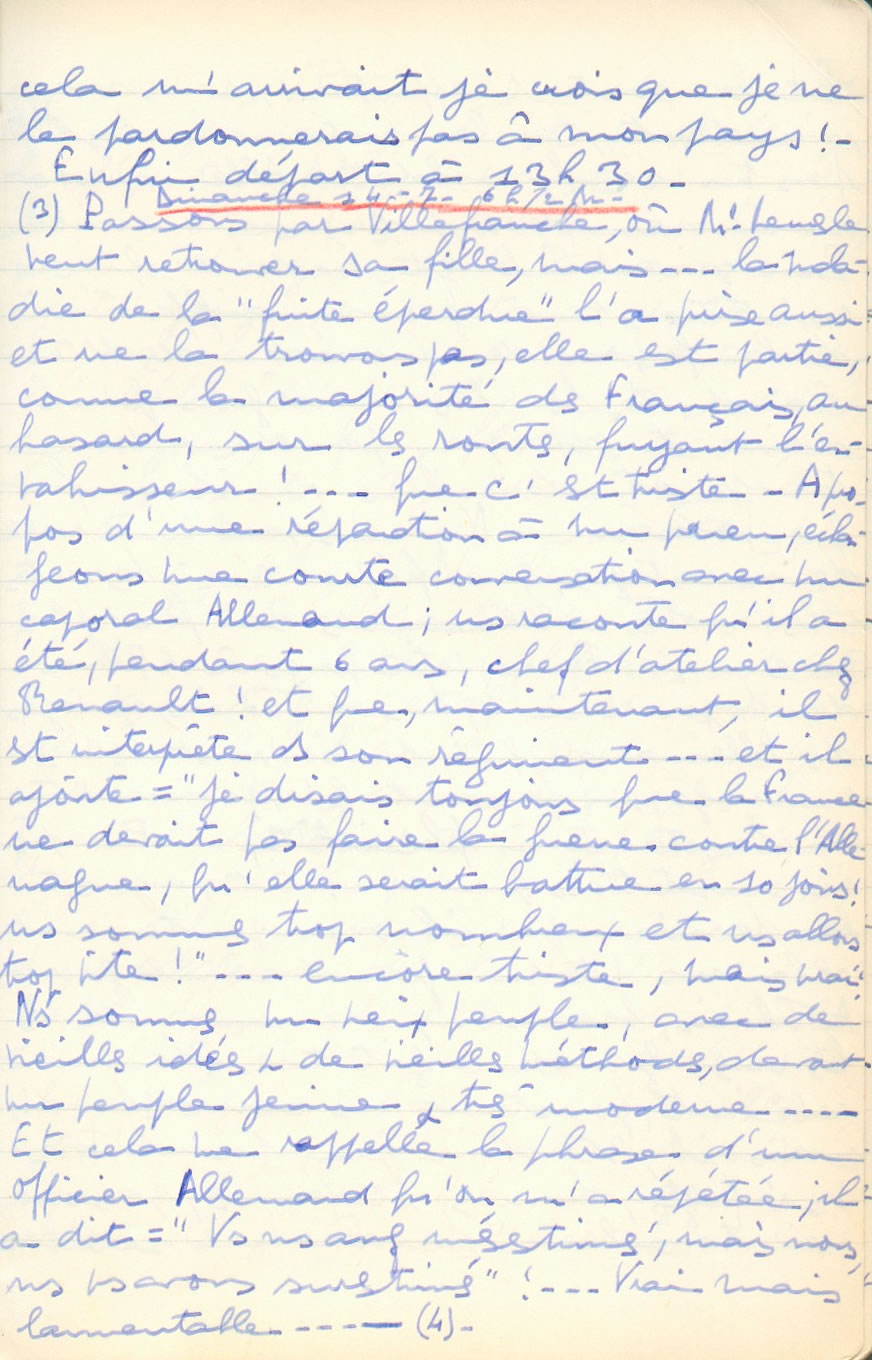 cela m'arrivait je crois que je ne
le pardonnerais pas à mon pays ! -
Enfin départ à 13h 30 -
Dimanche 14 - 7 - 6h 1/2 M -
(3) Passons par Villefranche, où Mr
veut retrouver sa fille, mais --- la mala-
die de la "fuite éperdue" l'a prise aussi
et ne la trouvons pas, elle est partie,
comme la majorité des Français, au
hasard, sur les routes, fuyant l'en-
vahisseur ! --- que c'est triste - A pro-
pos d'une réfaction à un pneu, échan-
geons une courte conversation avec un
caporal Allemand ; ns raconte qu'il a
été, pendant 6 ans, chef d'atelier chez
Renault ! et que, maintenant, il
est interprète ds son régiment --- et il
ajoute = "je disais toujours que la France
ne devait pas faire la guerre contre l'Alle-
magne, qu'elle serait battue en 10 jours !
ns sommes trop nombreux et ns allons
trop vite !" --- encore triste, mais vrai
Ns sommes un vieux peuple, avec de
vieilles idées & de vieilles méthodes, devant
un peuple jeune & très moderne ----
Et cela me rappelle la phrase d'un
officier Allemand qu'on m'a répétée ; il
a dit = "Vs ns avez mésestimés, mais nous,
ns vs avons surestimés" ! --- Vrai mais
lamentable ----- (4) -